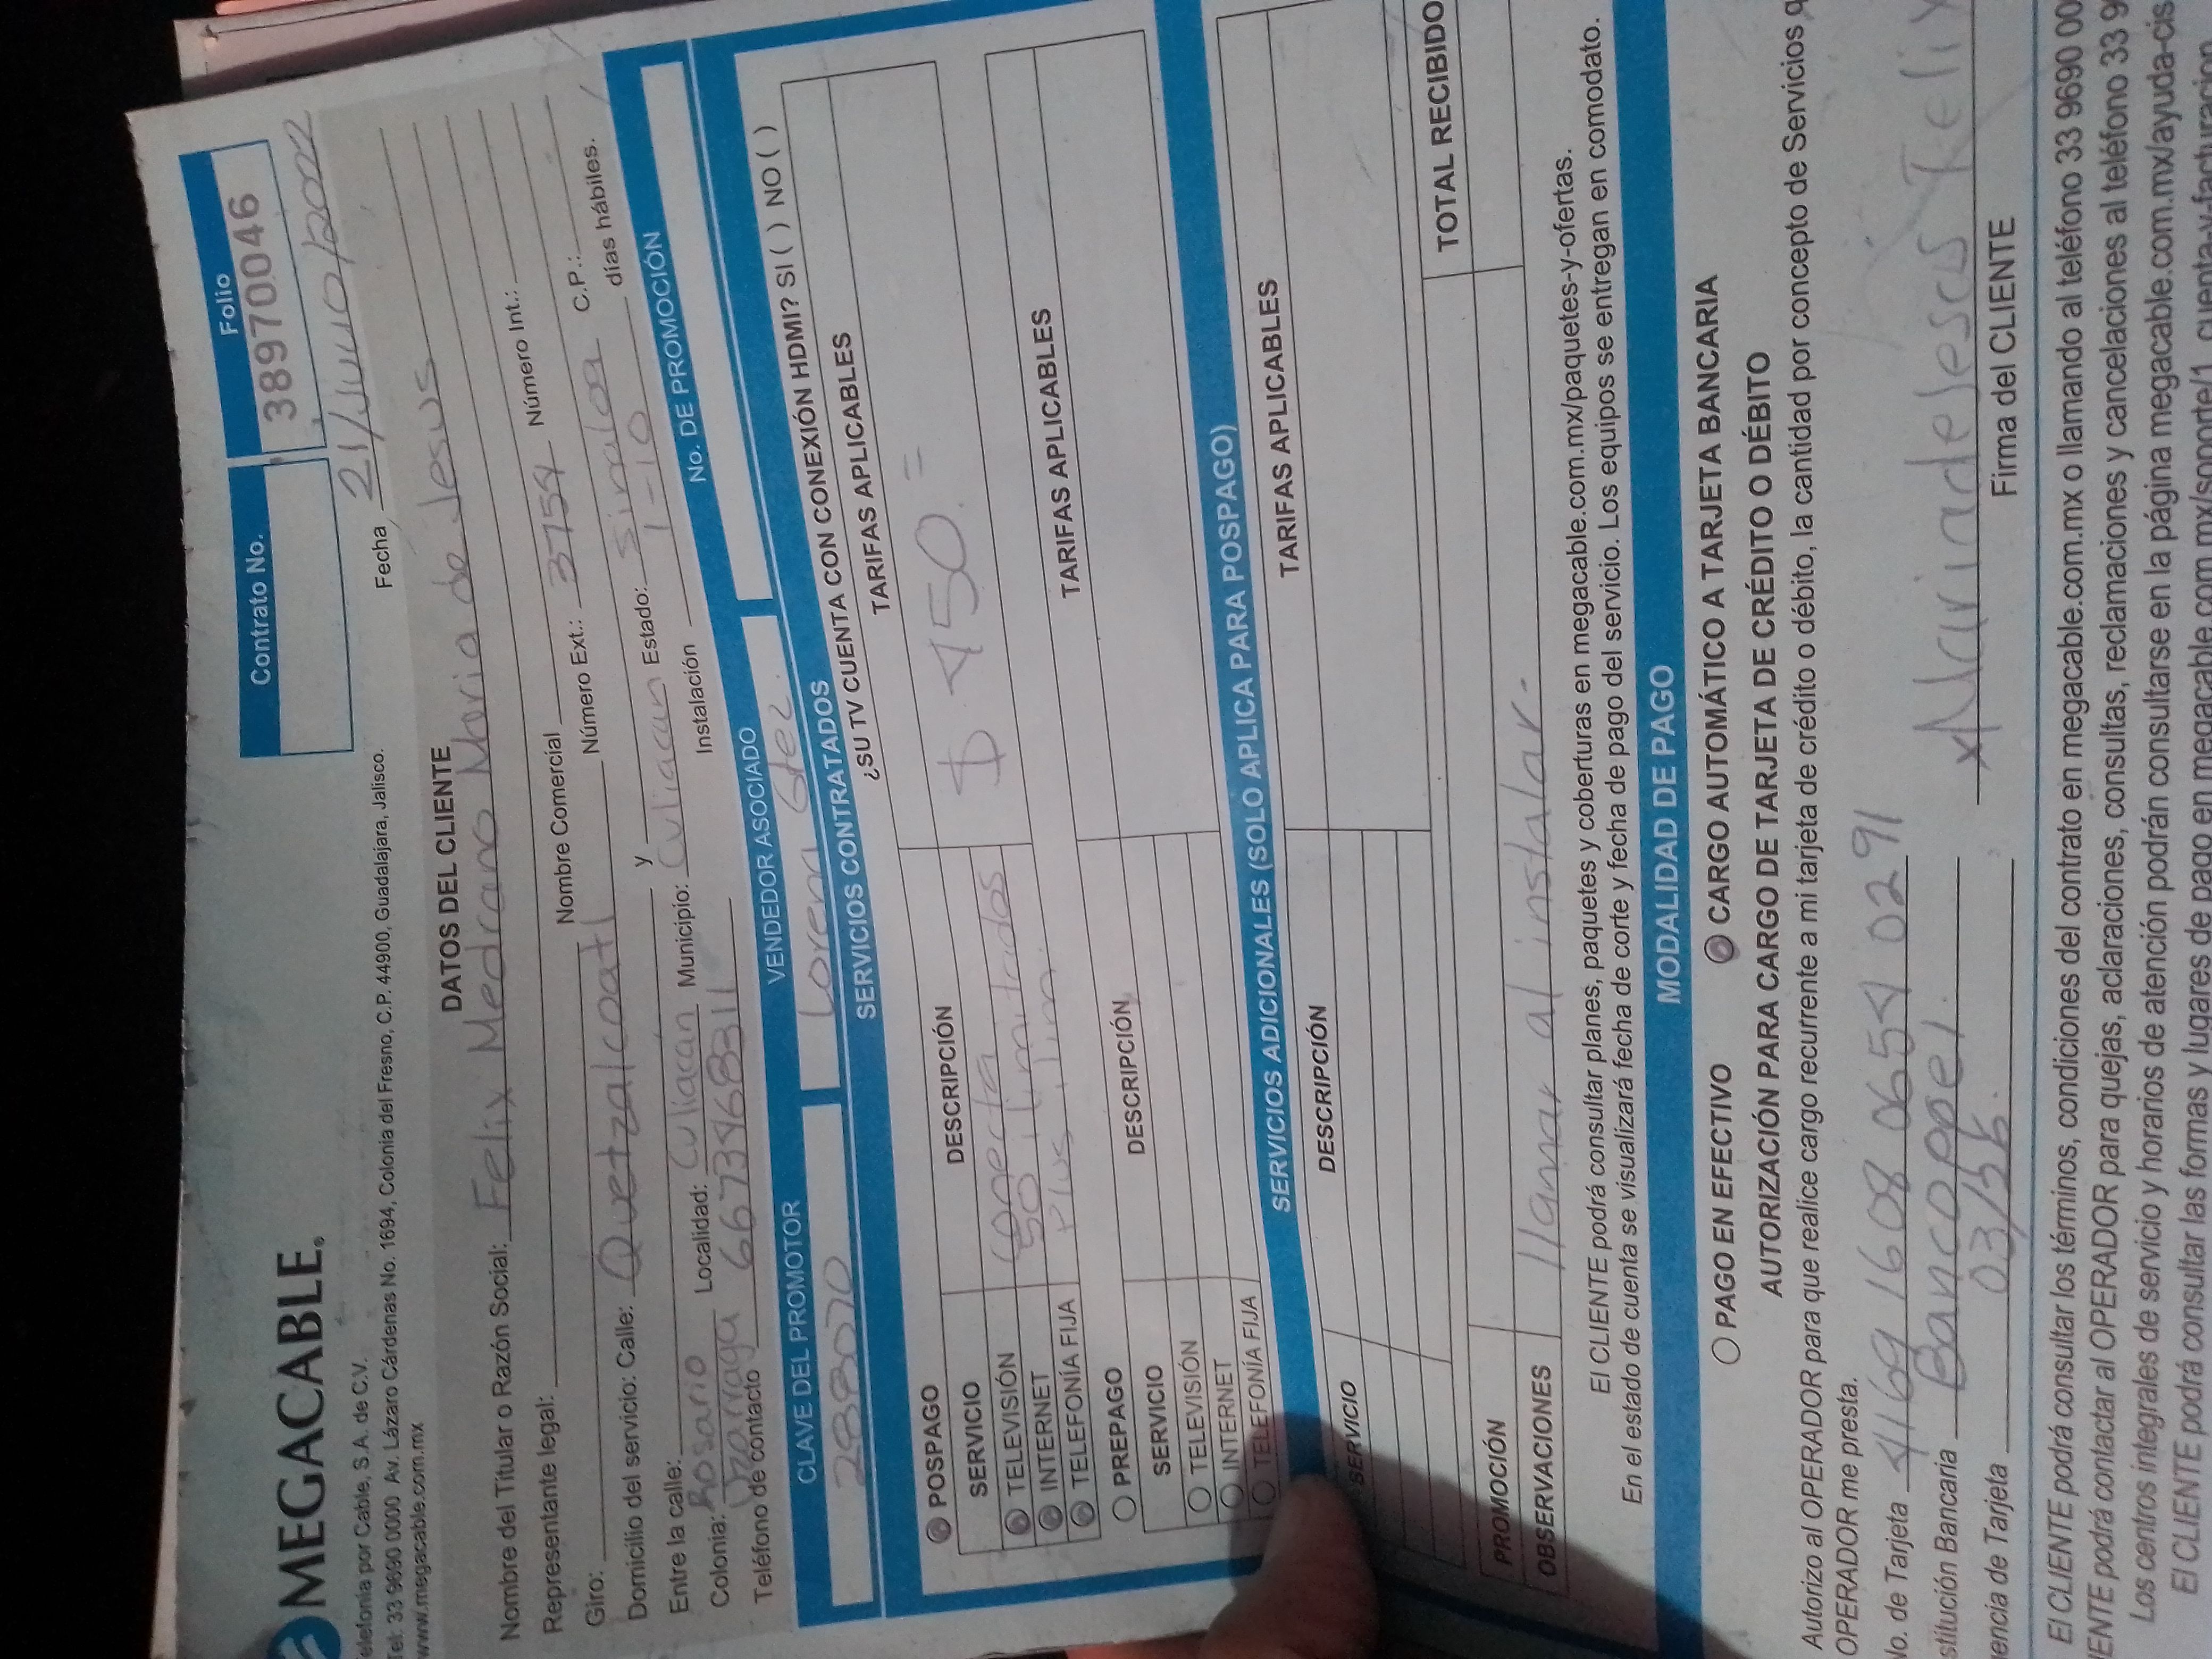 MEGACABLE®
Telefonía por Cable, S.A. de C.V.
Tel: 33 9690 0000 Av. Lázaro Cárdenas No. 1694, Colonia del Fresno, C.P. 44900, Guadalajara, Jalisco.
www.megacable.com.mx
Contrato No.
Folio
38970046
Fecha 21/Junio/2022
DATOS DEL CLIENTE
Nombre del Titular o Razón Social: Felix Medrano Maria de Jesus
Representante legal: Nombre Comercial
Giro: Número Int.:
Domicilio del servicio: Calle: Quetzalcoatl Número Ext.: 3754 C.P.:
Entre la calle: y
Colonia: Rosario Uzarraga Localidad: Culiacan Municipio: Culiacan Estado: Sinaloa
Teléfono de contacto 6673468311 Instalación 1-10 días hábiles.
CLAVE DEL PROMOTOR VENDEDOR ASOCIADO No. DE PROMOCIÓN
2883070 Lorena Gtez.
SERVICIOS CONTRATADOS
¿SU TV CUENTA CON CONEXIÓN HDMI? SI ( ) NO ( )
POSPAGO
SERVICIO DESCRIPCIÓN TARIFAS APLICABLES
TELEVISIÓN $ 450.=
INTERNET 50 ilimitados
TELEFONÍA FIJA Plus ilim.
PREPAGO
SERVICIO DESCRIPCIÓN TARIFAS APLICABLES
TELEVISIÓN
INTERNET
TELEFONÍA FIJA
SERVICIOS ADICIONALES (SOLO APLICA PARA POSPAGO)
SERVICIO DESCRIPCIÓN TARIFAS APLICABLES
TOTAL RECIBIDO
PROMOCIÓN
OBSERVACIONES llamar al instalar.
El CLIENTE podrá consultar planes, paquetes y coberturas en megacable.com.mx/paquetes-y-ofertas.
En el estado de cuenta se visualizará fecha de corte y fecha de pago del servicio. Los equipos se entregan en comodato.
MODALIDAD DE PAGO
PAGO EN EFECTIVO CARGO AUTOMÁTICO A TARJETA BANCARIA
AUTORIZACIÓN PARA CARGO DE TARJETA DE CRÉDITO O DÉBITO
Autorizo al OPERADOR para que realice cargo recurrente a mi tarjeta de crédito o débito, la cantidad por concepto de Servicios q
OPERADOR me presta.
No. de Tarjeta 4169 1608 0654 0291
stitución Bancaria Bancoppel.
encia de Tarjeta
x Mariadejesus Felix
Firma del CLIENTE
El CLIENTE podrá consultar los términos, condiciones del contrato en megacable.com.mx o llamando al teléfono 33 9690 00
ENTE podrá contactar al OPERADOR para quejas, aclaraciones, consultas, reclamaciones y cancelaciones al teléfono 33 9
Los centros integrales de servicio y horarios de atención podrán consultarse en la página megacable.com.mx/ayuda-cis
El CLIENTE podrá consultar las formas y lugares de pago en megacable.com.mx/soporte/1_cuenta-y-facturacion